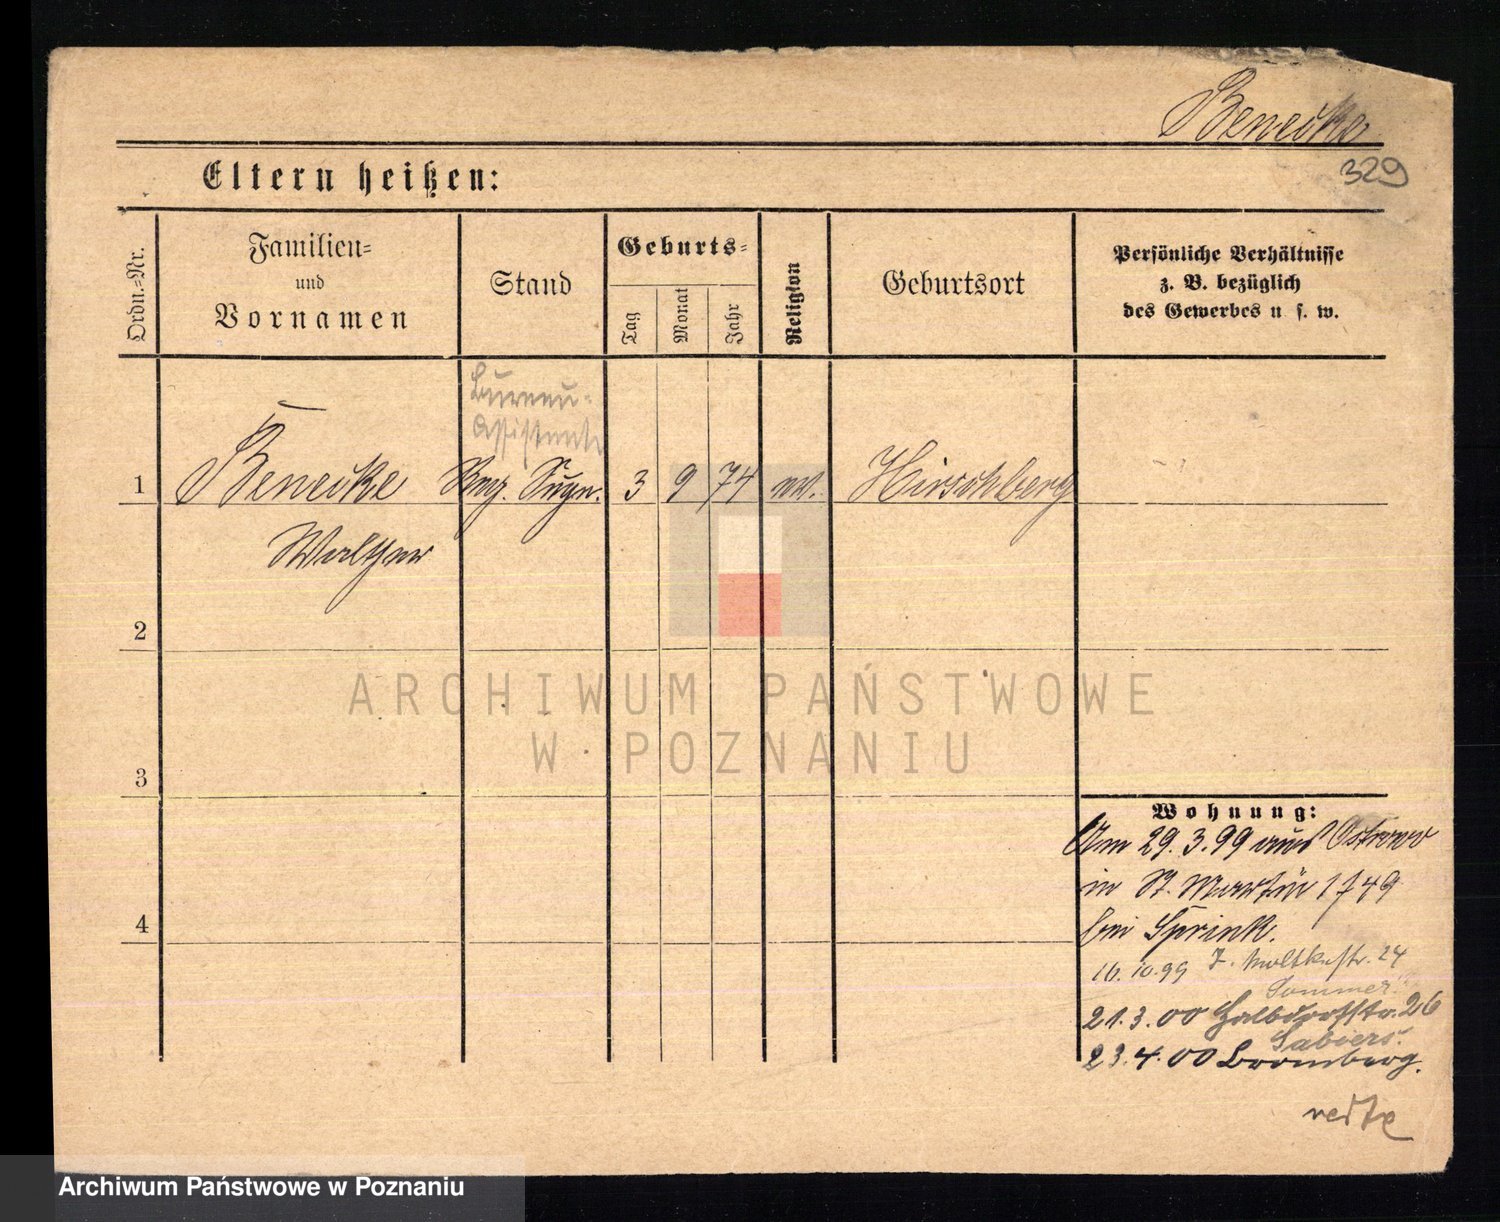 Benecke
329
Eltern heißen:
Ordn.-Nr.
Familien-
und
Vornamen
Stand
Geburts-
Tag
Monat
Jahr
Religion
Geburtsort
Persönliche Verhältnisse
z. B. bezüglich
des Gewerbes u. s. w.
Bureau-
Assistent
1 Benecke Reg. Supn. 3 9 74 ev. Hirschberg
Walther
2
3
4
Wohnung:
Am 29.3.99 aus Ostrowo
in St. Martin 1749
bei Sprink.
16.10.99 Moltkestr. 24
Sommer
21.3.00 Halbdorfstr. 26
Sabiers.
23.4.00 Bromberg.
ARCHIWUM PAŃSTWOWE
W POZNANIU
Archiwum Państwowe w Poznaniu